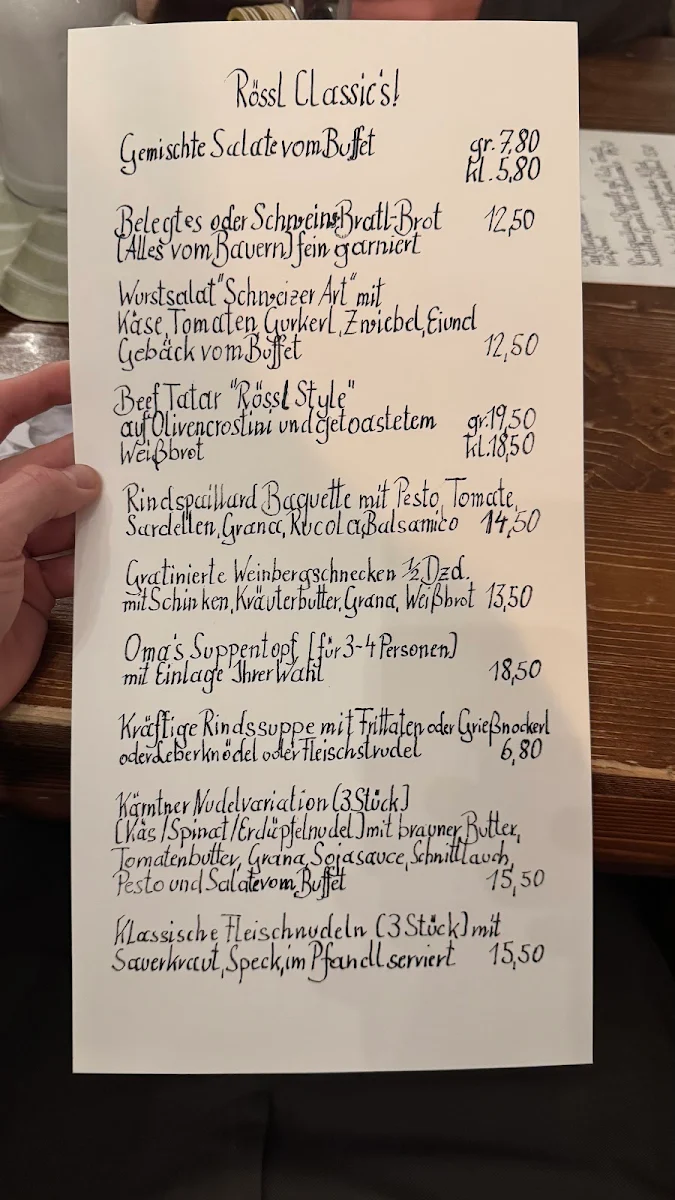 Rössl Classic's!
Gemischte Salate vom Buffet gr. 7,80
kl. 5,80
Belegtes oder Schweins Bratl-Brot 12,50
(Alles vom Bauern) fein garniert
Wurstsalat "Schweizer Art" mit
Käse, Tomaten, Gurkerl, Zwiebel, Ei und
Gebäck vom Buffet 12,50
Beef Tatar "Rössl Style"
auf Olivencrostini und getoastetem gr. 19,50
Weißbrot kl. 18,50
Rindspaillard Baguette mit Pesto, Tomate,
Sardellen, Grana, Rucola, Balsamico 14,50
Gratinierte Weinbergschnecken 1/2 Dzd.
mit Schinken, Kräuterbutter, Grana, Weißbrot 13,50
Oma's Suppentopf (für 3-4 Personen)
mit Einlage Ihrer Wahl 18,50
Kräftige Rindssuppe mit Frittaten oder Grießnockerl
oder Leberknödel oder Fleischstrudel 6,80
Kärntner Nudelvariation (3 Stück)
(Käs/Spinat/Erdäpfelnudel) mit brauner Butter,
Tomatenbutter, Grana, Sojasauce, Schnittlauch,
Pesto und Salate vom Buffet 15,50
Klassische Fleischnudeln (3 Stück) mit
Sauerkraut, Speck, im Pfandl serviert 15,50